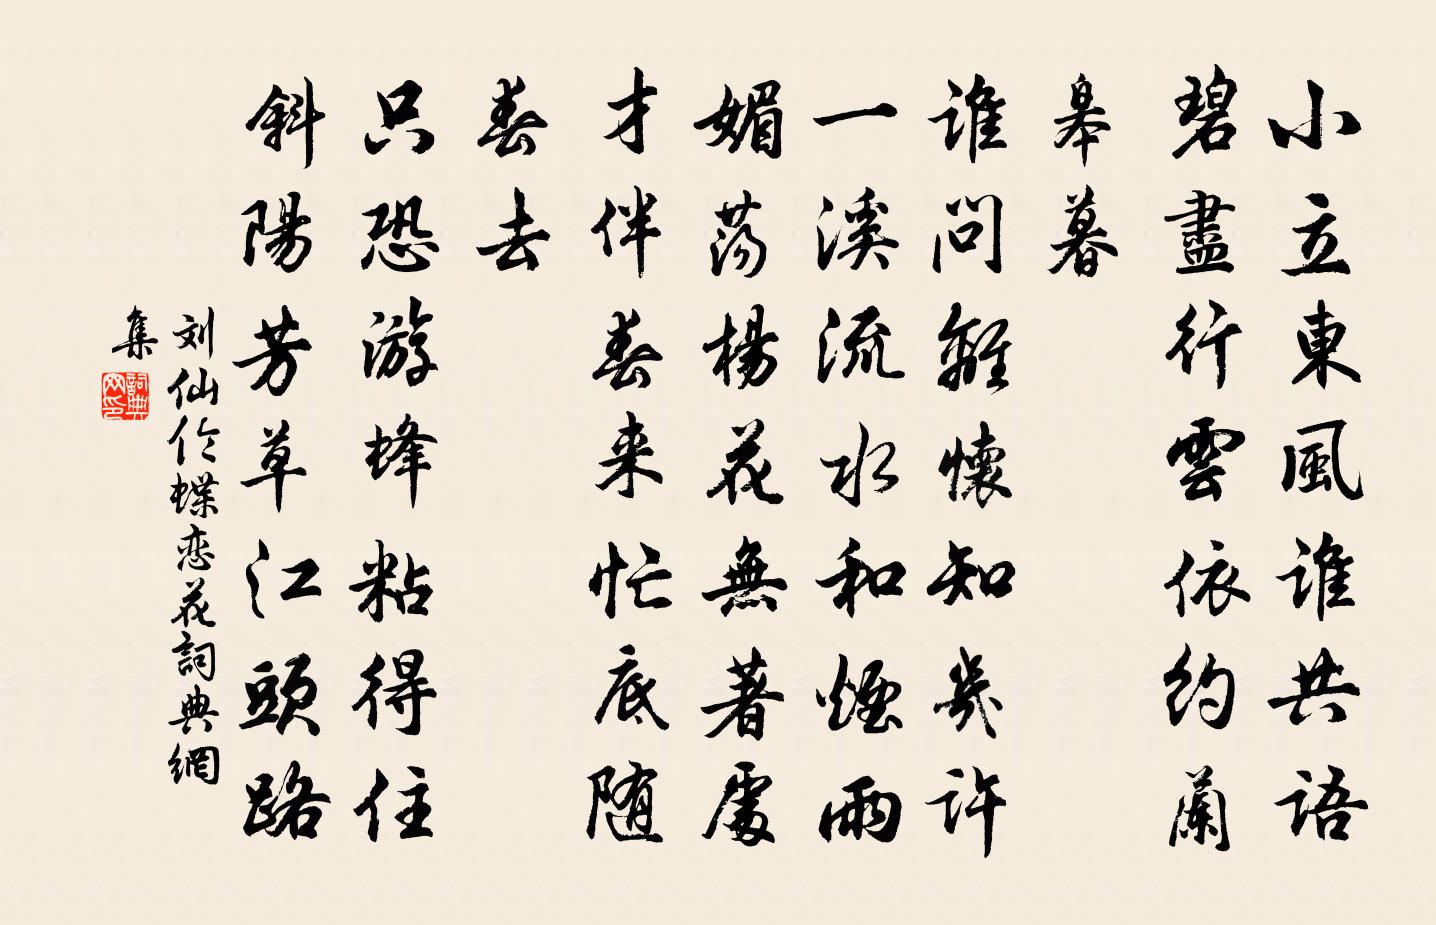 小立東風誰共語
碧盡行雲依約蘭
皋暮
誰問離懷知幾許
一溪流水和煙雨
媚蕩楊花無著處
才伴春来忙底随
春去
只恐游蜂粘得住
斜陽芳草江頭路
刘仙伦蝶恋花詞典網
集
詞典
网印